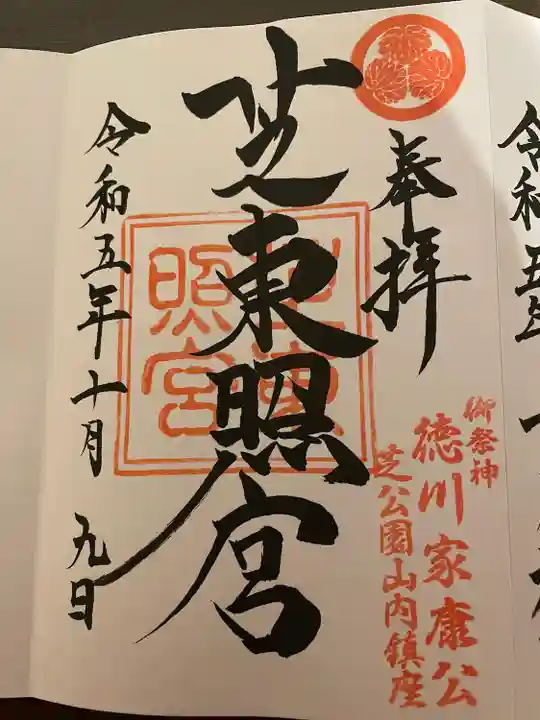 奉拝
御祭神
徳川家康公
芝公園山内鎮座
芝東照宮
芝東照宮
令和五年十月九日
令和五年